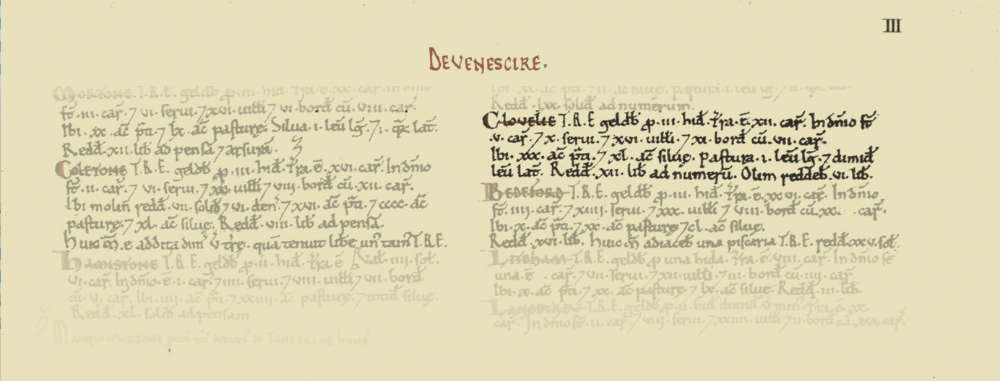 III
DEVENESCIRE.
T.R.E. geldb̄ ꝓ .III. hid̄.
fō .III. car̄. ⁊ VI. serui. ⁊ XVI. uilłi ⁊ VI. bord̄ cū .VIII. car̄.
Ibi .XX. ac̄ p̄ti. ⁊ LX. ac̄ pasturę. Silua .I. leu̅ lg̅. ⁊ .I. lat̅.
Redd̄ .XII. lib̄ ad pensā ⁊ arsurā.
COLETONE T.R.E. geldb̄ ꝓ .III. hid̄. Tr̄a ē .XVI. car̄. In dn̄io
fō .II. car̄. ⁊ VI. serui. ⁊ uilłi ⁊ VIII. bord̄ cū .XII. car̄.
Ibi molin̄ redd̄ .VII. solid̄ ⁊ VI. den̄. ⁊ XVI. ac̄ p̄ti. ⁊ CCCC. ac̄
pasturę. ⁊ XL. ac̄ siluę. Redd̄ .VIII. lib̄ ad pensā.
Huic m̄ ē addita dim̄ v̄ tr̄ę. qua tenuit libe un̄ tain̄ T.R.E.
T.R.E. geldb̄ ꝓ .II. hid̄. Tr̄a ē
VI. car̄. In dn̄io ē .I. car̄. ⁊ serui. ⁊ VIII. uilłi ⁊ VIII. bord̄
cū .V. car̄. Ibi .III. ac̄ p̄ti. ⁊ XXIIII. ac̄ pasturę. ⁊ siluę.
Redd̄ .XL. ad pensam
Redd̄ .LXX. solid̄ ad numerum.
CLOVELIE T.R.E. geldb̄ ꝓ .III. hid̄. Tr̄a ē .XII. car̄. In dn̄io fō
.V. car̄. ⁊ X. serui. ⁊ XVI. uilłi. ⁊ XI. bord̄ cū .VII. car̄.
Ibi .XXX. ac̄ p̄ti. ⁊ XL. ac̄ siluę. Pastura .I. leu̅ lg̅. ⁊ dimid̄
leu̅ lat̅. Redd̄ .XII. lib̄ ad numerū. Olim reddeb̄ .VI. lib̄.
BEDEFORD T.R.E. geldb̄ ꝓ .III. hid̄. Tr̄a ē XXVI. car̄. In dn̄io
fō .IIII. car̄. ⁊ XIIII. serui. ⁊ XXX. uilłi ⁊ VIII. bord̄ cū .XX. car̄.
Ibi .X. ac̄ p̄ti. ⁊ XX. ac̄ pasturę ⁊ CL. ac̄ siluę.
Redd̄ .XVI. lib̄. Huic m̄ adiaceb̄ una piscaria T.R.E. redd̄ .XXV. sol̄.
T.R.E. geldb̄ ꝓ una hida. Tr̄a ē .VIII. car̄. In dn̄io fō
una ē car̄. ⁊ VII. serui. ⁊ XII. uilłi ⁊ III. bord̄ cū .IIII. car̄.
Ibi .X. ac̄ p̄ti. ⁊ XX. ac̄ pasturę. ⁊ LX. ac̄ siluę. Redd̄ .III. lib̄.
T.R.E. geldb̄ ꝓ .II. hid̄
car̄. In dn̄io fō .II. car̄. ⁊ serui. ⁊ uilłi ⁊ II. bord̄ car̄.